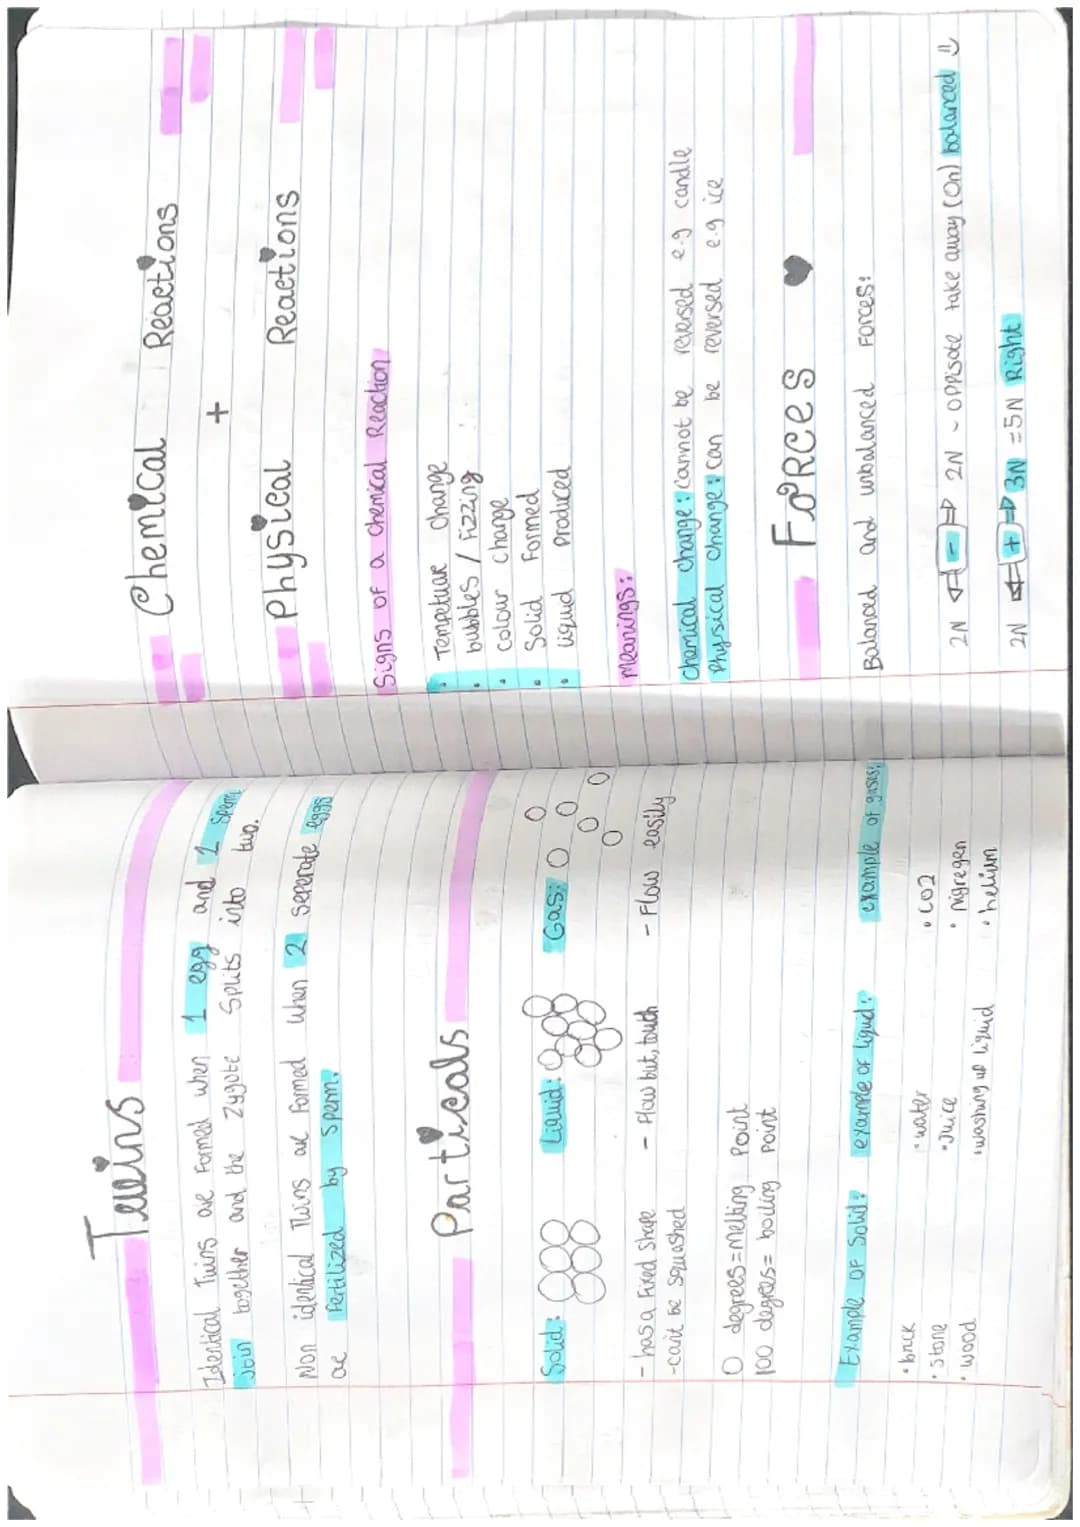 Twins
Identical Twins are Formed when 1 egg and 1 sperm
Join together and the Zygote Splits into two.
Non identical Twins are formed when 2 seperate eggs
are fertilized by sperm.
Particals
Solid: Liquid: Gas:
- has a Fixed shape - Flow but, touch - Flow easily
- can't be squashed
0 degrees = melting Point
100 degrees = boiling point
Example OF Solid: example of liquid: example of gases:
• brick • water • CO2
• Stone • Juice • nigregen
• wood • washing up liquid • helium
Chemical Reactions
+
Physical Reactions
Signs of a Chemical Reaction
• Tempetuae change
• bubbles / Fizzing
• Colour change
• Solid Formed
• liquid produced
Meanings:
Chemical change: Cannot be reversed e.g candle
Physical change: Can be reversed e.g ice
FoRCES
Balanced and unbalanced Forces:
2N ⇐ - ⇒ 2N - oppisate take away (0n) balanced
2N ⇐ + ⇒ 3N = 5N Right